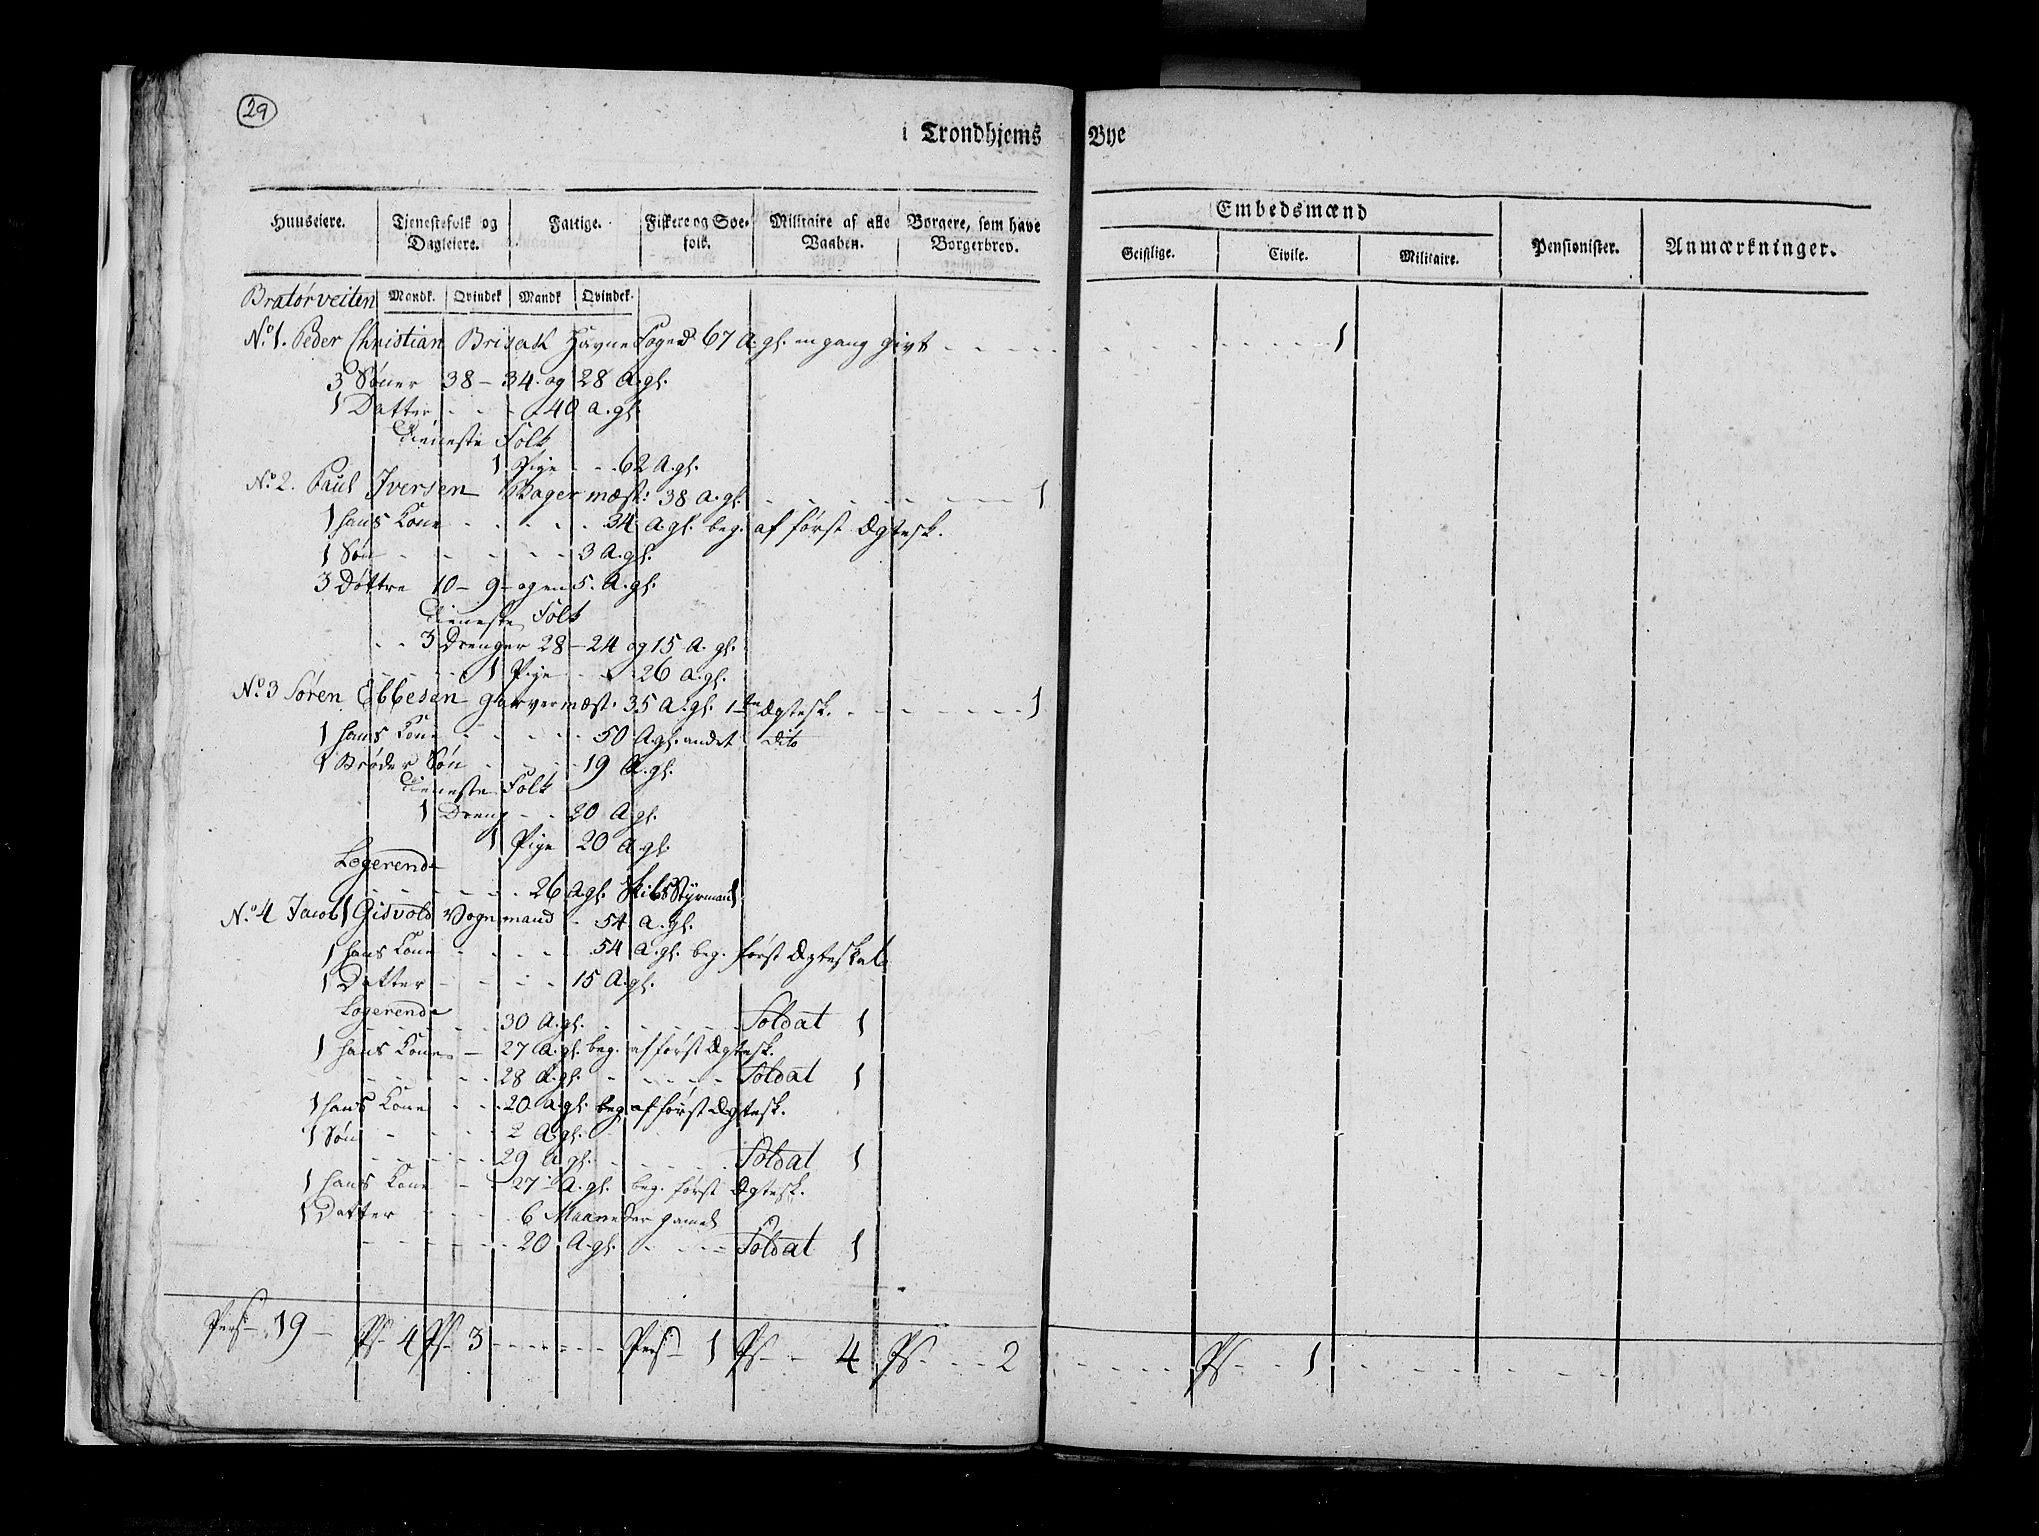 29
i Trondhjems Bye
Huuseiere. Tjenestefolk og Dagleiere. Fattige. Fiskere og Søefolk. Militaire af alle Vaaben. Borgere, som have Borgerbrev. Embedsmænd Geistlige. Civile. Militaire. Pensionister. Anmærkninger.
Bratørveiten Mandk. Qvindek Mandk Qvindek.
No 1. Peder Christian Brisack HavneFoged 67 A. gl. en gang givt - - - - - - 1
3 Søner 38 - 34. og 28 A. gl.
1 Datter - - - 40 a. gl.
Tieneste Folk
1 Pige - - 62 A. gl.
No 2. Paul Iversen Bager mæst: 38 A. gl. - - - - - - 1
1 hans Kone - - - - 34 A. gl. beg. af først Ægtesk.
1 Søn - - - - - 3 A. gl.
3 Døttre 10 - 9 - og en 5. A. gl.
Tieneste Folk
- - 3 Drenger 28 - 24 og 15 A. gl.
- - - 1 Pige - - 26 A. gl.
No 3 Søren Ebbesen garvermæst. 35 A. gl. 1te Ægtesk. - - - - - 1
1 hans Kone - - - - 50 A. gl. andet Dito
1 Broder Søn - - - 19 A. gl.
Tieneste Folk
1 Dreng - - 20 A. gl.
1 Pige 20 A. gl.
Logerende
- - - - - 26 A. gl. Skibs Styrmand 1
No 4 Jacob Gisvold Vognmand - 54 a. gl.
1 hans Kone - - - - 54 A. gl. beg. først Ægteskab
1 Datter - - - - 15 A. gl.
Logerende
- - - - 30 A. gl. - - - - Soldat 1
1 hans Kone - 27 A. gl. beg. af først Ægtesk.
- - - - 28 A. gl. - - - - Soldat 1
1 hans Kone - - 20 A. gl. beg. af først Ægtesk.
1 Søn - - - - 2 A. gl.
- - - - 29 A. gl. - - - - Soldat 1
1 hans Kone - - 27 A. gl. beg. først Ægtesk.
1 Datter - - - 6 Maaneder gamel
- - - - - 20 A. gl. - - - Soldat 1
Pers 19 - Ps - 4 Ps - 3 - - - - - Pers - 1 Ps - - 4 Ps - - - 2 - - - - Ps - - 1 - - - - - -